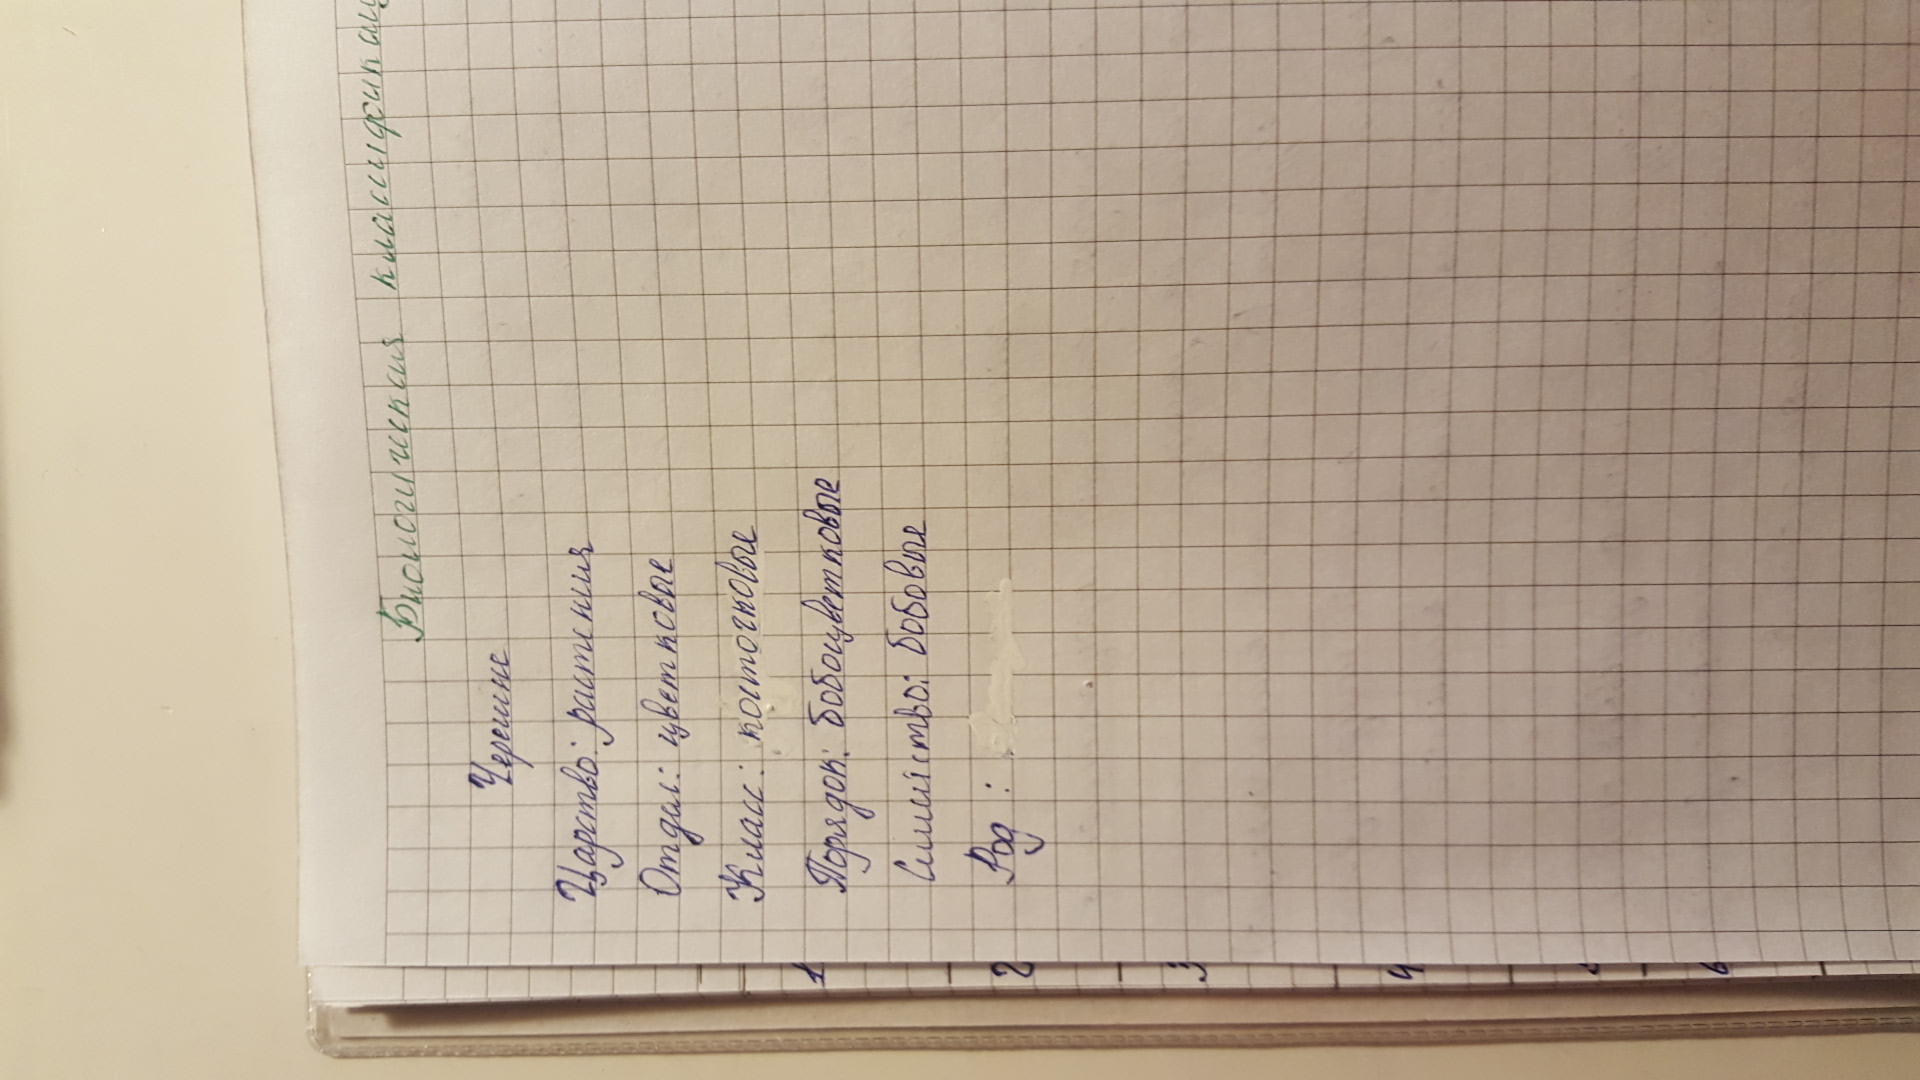 Биологическая классификац
Черешне
Царство: растения
Отдел: цветковые
Класс: косточковые
Порядок: бобоцветковые
Семейство: бобовые
Род :
1
2
3
4
6